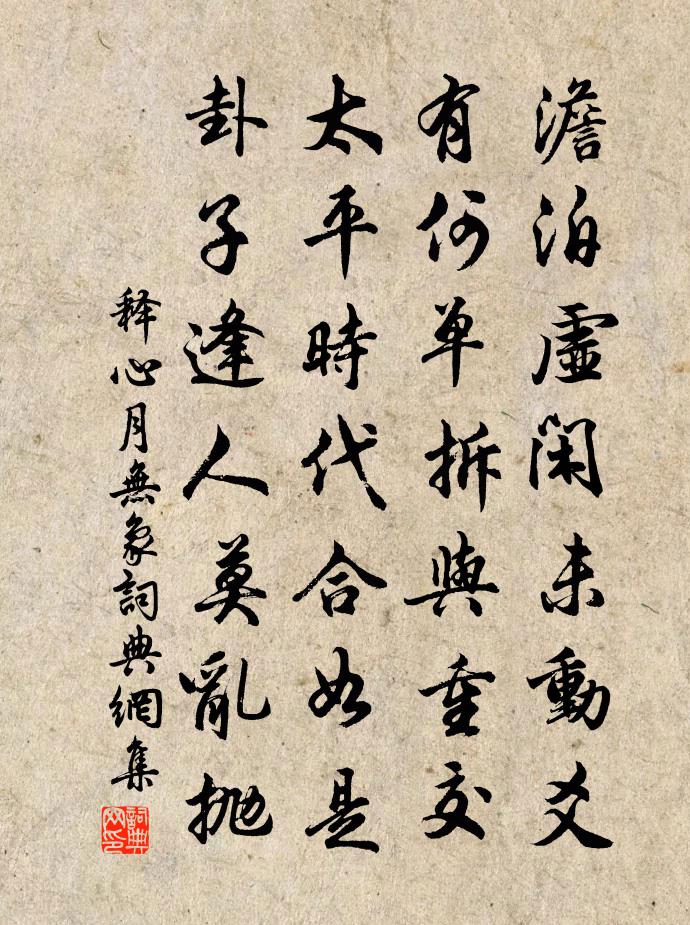 澹泊虛閑未動爻
有何單拆與重交
太平時代合如是
卦子逢人莫亂拋
释心月無象詞典網集
詞典网印